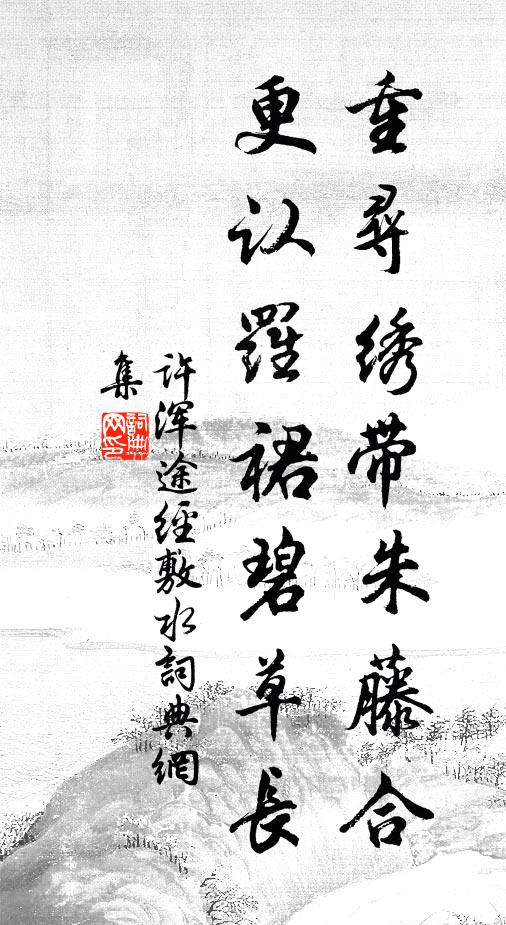 重尋绣带朱藤合
更认羅裙碧草長
许浑途經敷水詞典網
集
詞典网印